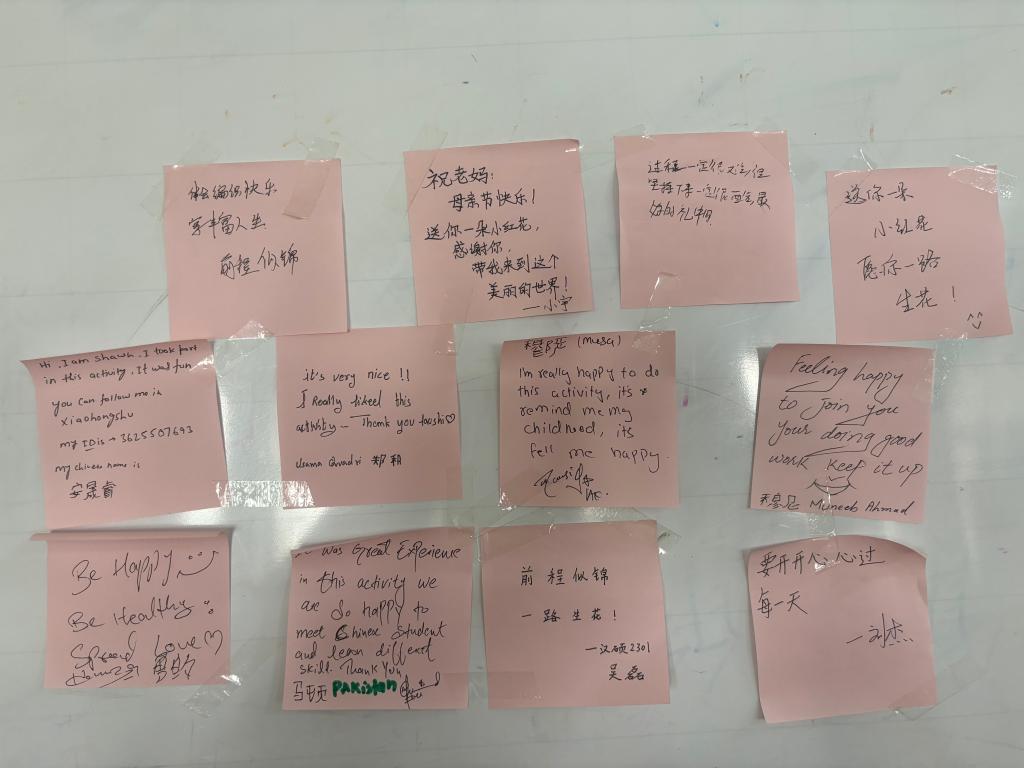 体会编织快乐
享丰富人生
前程似锦
祝老妈:
母亲节快乐!
送你一朵小红花,
感谢你,
带我来到这个
美丽的世界!
—小宇
过程一定很难,但
坚持下来一定会
好的礼物
送你一朵
小红花
愿你一路
生花!
^^
Hi, I am shawn, I took part
in this activity, It was fun
you can follow me in
Xiaohongshu
my ID is → 3625507693
my chinese name is
安晟睿
it's very nice !!
I Really likeel this
activity - Thank you taoshi♡
Usama Quadri 郑和
穆萨 (Musa)
I'm really happy to do
this activity, its
remind me my
childhood, its
fell me happy.
Feeling happy
to join you
your doing good
work Keep it up
穆尼 Muneeb Ahmad
Be Happy
Be Healthy
Spread Love♡
was Great Experience
in this activity we
are so happy to
meet Chinese Student
and learn different
skill. Thank You
PAKistan
前程似锦
一路生花!
—汉硕2301
吴磊
要开开心心过
每一天
—刘杰